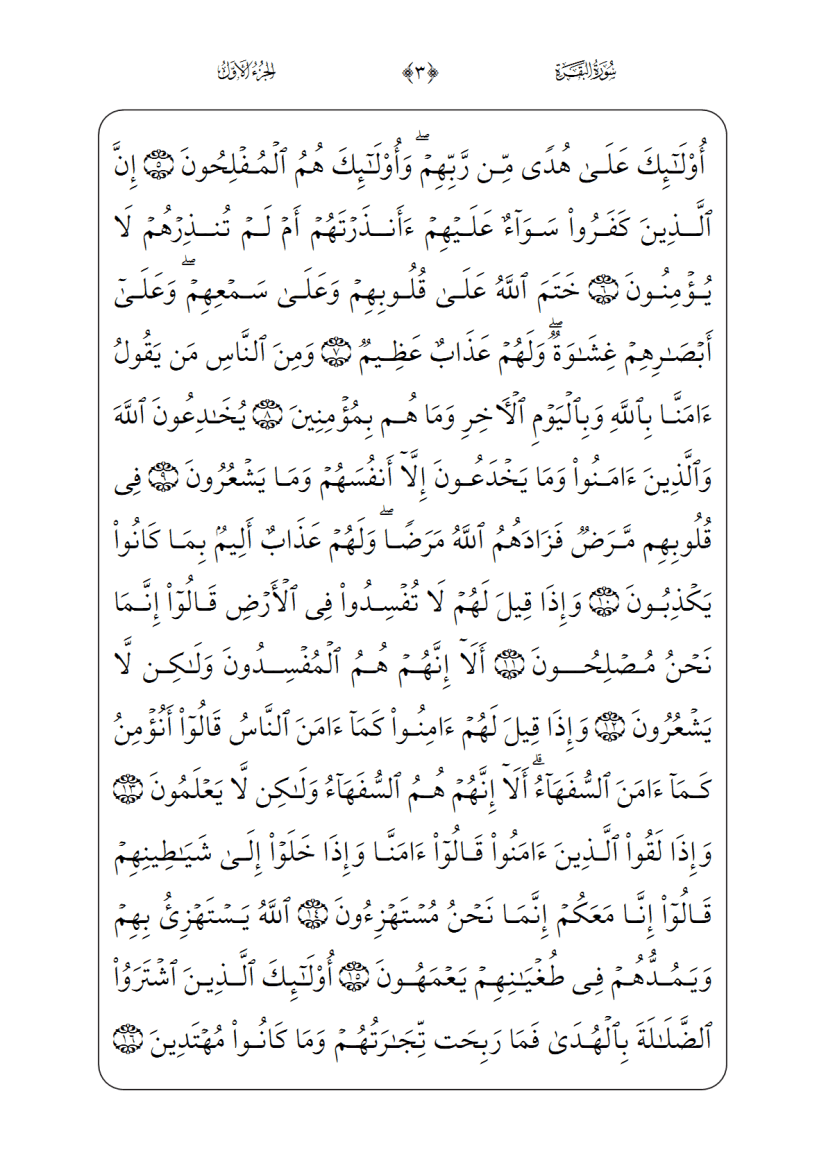 سُورَةُ البَقَرَةِ ﴿٣﴾ الجُزْءُ الأَوَّلُ
أُوْلَٰٓئِكَ عَلَىٰ هُدًى مِّن رَّبِّهِمۡۖ وَأُوْلَٰٓئِكَ هُمُ ٱلۡمُفۡلِحُونَ ٥ إِنَّ
ٱلَّذِينَ كَفَرُواْ سَوَآءٌ عَلَيۡهِمۡ ءَأَنذَرۡتَهُمۡ أَمۡ لَمۡ تُنذِرۡهُمۡ لَا
يُؤۡمِنُونَ ٦ خَتَمَ ٱللَّهُ عَلَىٰ قُلُوبِهِمۡ وَعَلَىٰ سَمۡعِهِمۡۖ وَعَلَىٰٓ
أَبۡصَٰرِهِمۡ غِشَٰوَةٞۖ وَلَهُمۡ عَذَابٌ عَظِيمٞ ٧ وَمِنَ ٱلنَّاسِ مَن يَقُولُ
ءَامَنَّا بِٱللَّهِ وَبِٱلۡيَوۡمِ ٱلۡأٓخِرِ وَمَا هُم بِمُؤۡمِنِينَ ٨ يُخَٰدِعُونَ ٱللَّهَ
وَٱلَّذِينَ ءَامَنُواْ وَمَا يَخۡدَعُونَ إِلَّآ أَنفُسَهُمۡ وَمَا يَشۡعُرُونَ ٩ فِي
قُلُوبِهِم مَّرَضٞ فَزَادَهُمُ ٱللَّهُ مَرَضٗاۖ وَلَهُمۡ عَذَابٌ أَلِيمُۢ بِمَا كَانُواْ
يَكۡذِبُونَ ١٠ وَإِذَا قِيلَ لَهُمۡ لَا تُفۡسِدُواْ فِي ٱلۡأَرۡضِ قَالُوٓاْ إِنَّمَا
نَحۡنُ مُصۡلِحُونَ ١١ أَلَآ إِنَّهُمۡ هُمُ ٱلۡمُفۡسِدُونَ وَلَٰكِن لَّا
يَشۡعُرُونَ ١٢ وَإِذَا قِيلَ لَهُمۡ ءَامِنُواْ كَمَآ ءَامَنَ ٱلنَّاسُ قَالُوٓاْ أَنُؤۡمِنُ
كَمَآ ءَامَنَ ٱلسُّفَهَآءُۗ أَلَآ إِنَّهُمۡ هُمُ ٱلسُّفَهَآءُ وَلَٰكِن لَّا يَعۡلَمُونَ ١٣
وَإِذَا لَقُواْ ٱلَّذِينَ ءَامَنُواْ قَالُوٓاْ ءَامَنَّا وَإِذَا خَلَوۡاْ إِلَىٰ شَيَٰطِينِهِمۡ
قَالُوٓاْ إِنَّا مَعَكُمۡ إِنَّمَا نَحۡنُ مُسۡتَهۡزِءُونَ ١٤ ٱللَّهُ يَسۡتَهۡزِئُ بِهِمۡ
وَيَمُدُّهُمۡ فِي طُغۡيَٰنِهِمۡ يَعۡمَهُونَ ١٥ أُوْلَٰٓئِكَ ٱلَّذِينَ ٱشۡتَرَوُاْ
ٱلضَّلَٰلَةَ بِٱلۡهُدَىٰ فَمَا رَبِحَت تِّجَٰرَتُهُمۡ وَمَا كَانُواْ مُهۡتَدِينَ ١٦